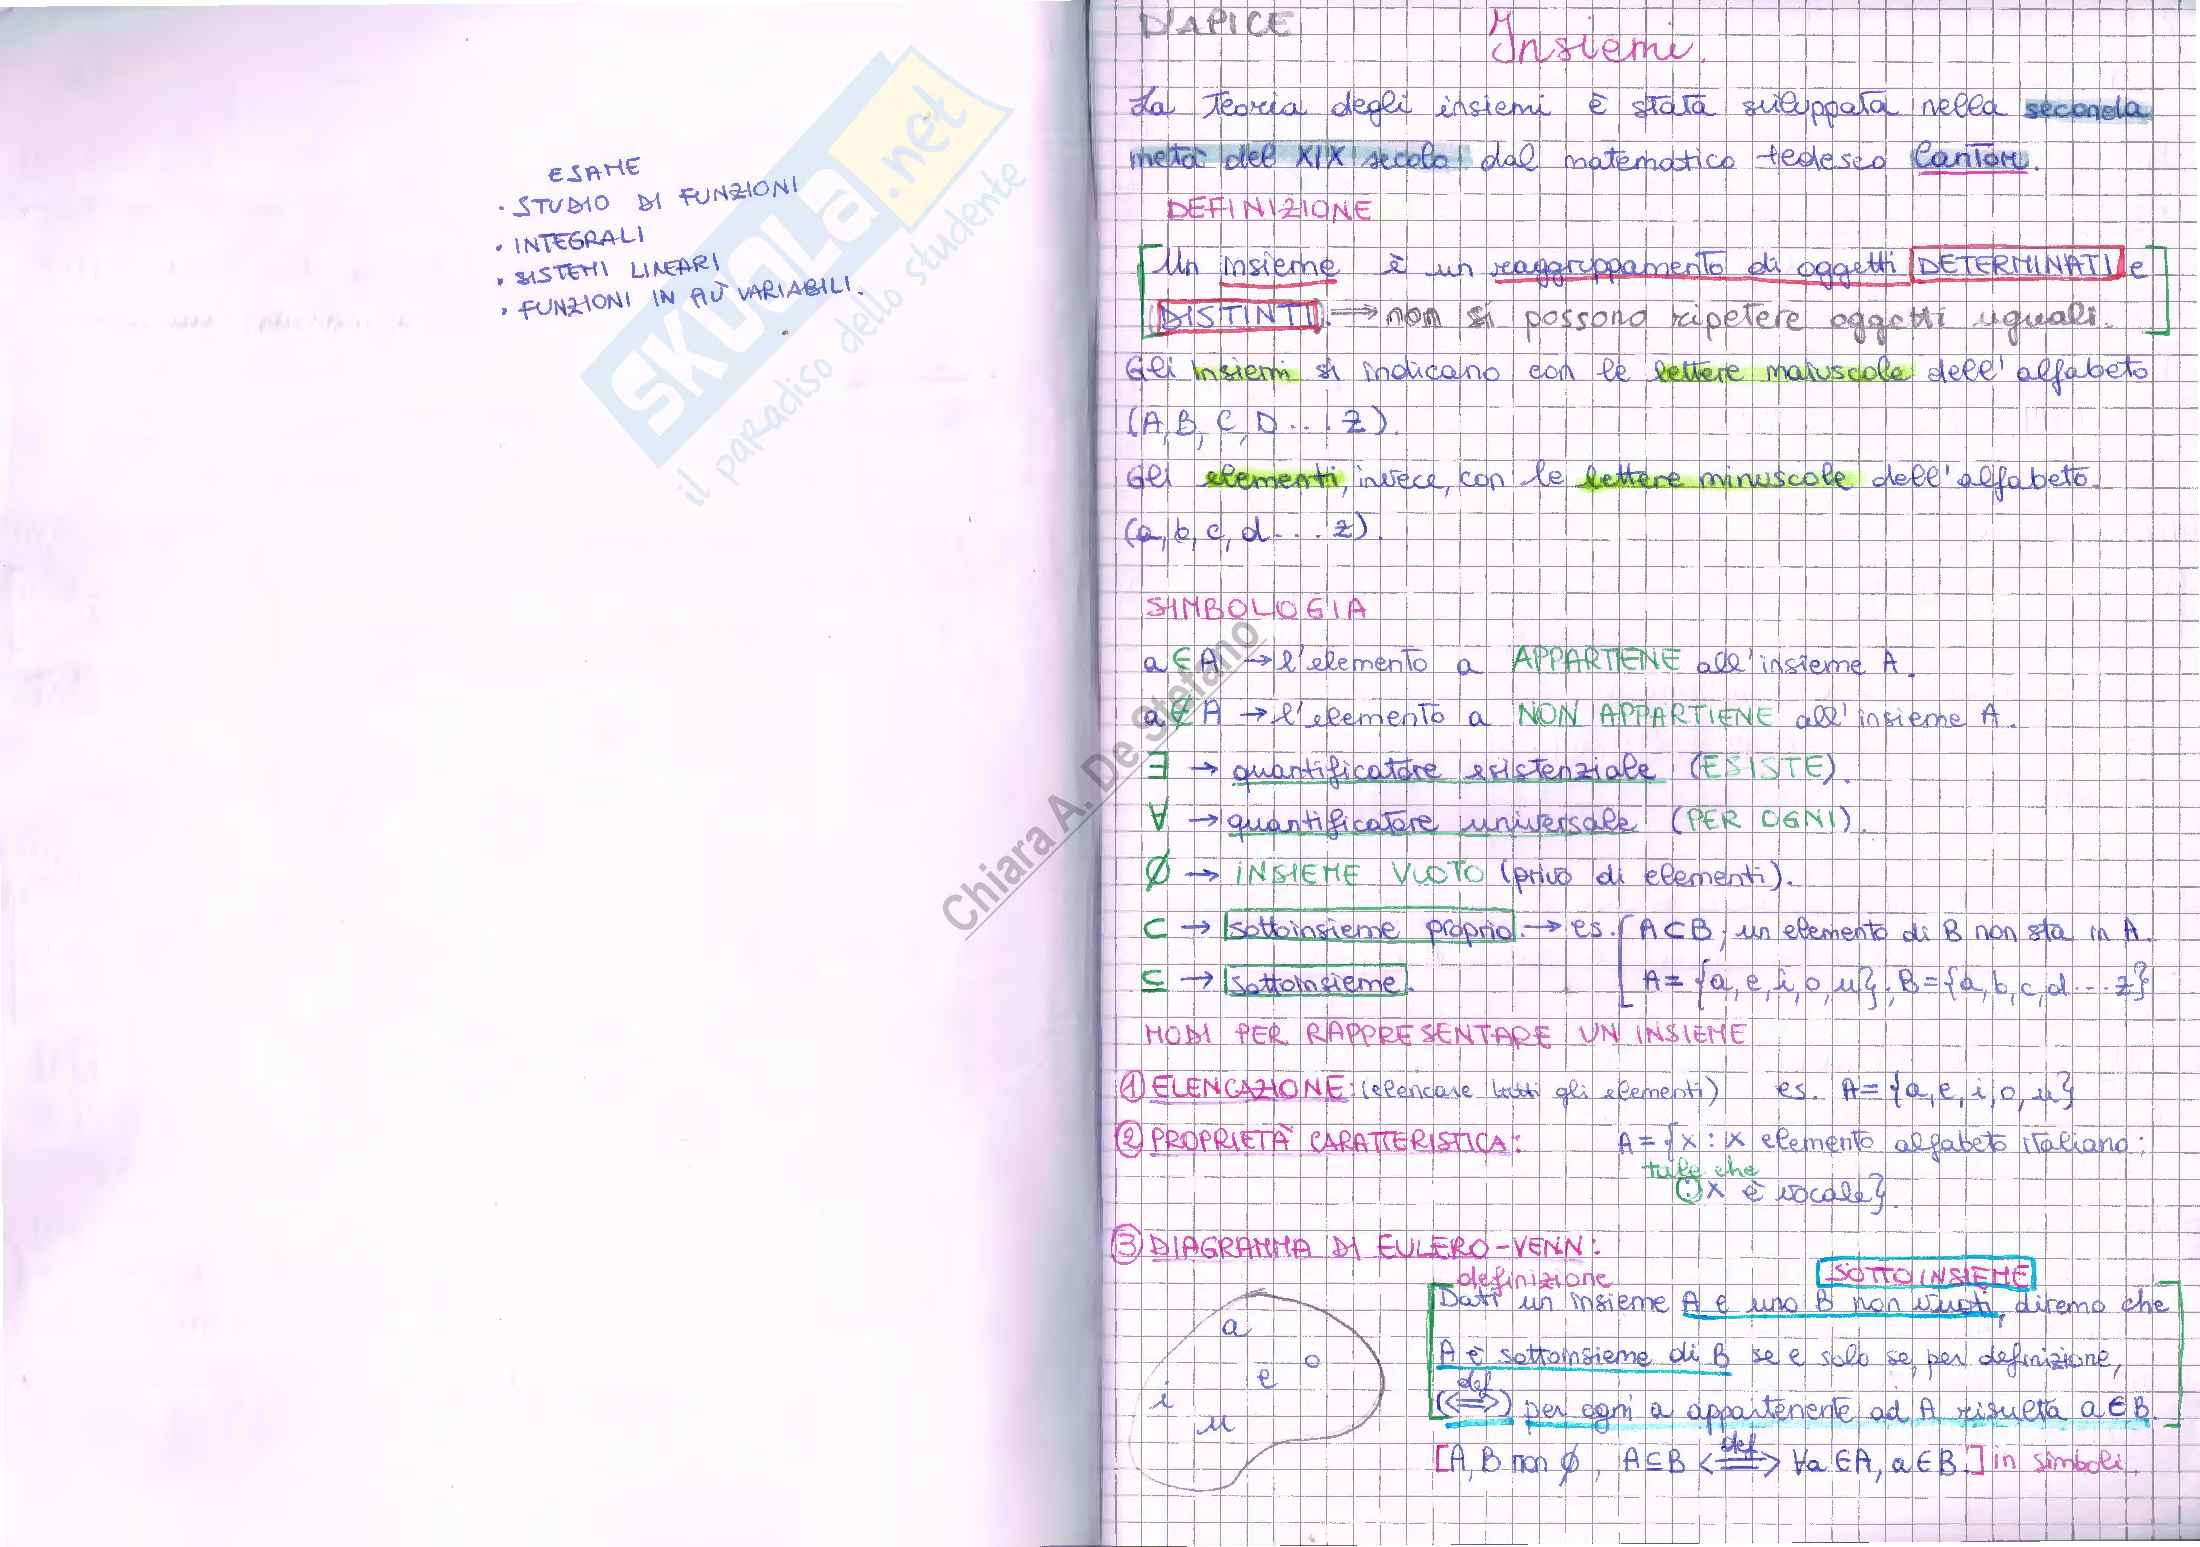 ESAME
· STUDIO DI FUNZIONI
· INTEGRALI
· SISTEMI LINEARI
· FUNZIONI IN PIÙ VARIABILI.
SKUOLA.net
il paradiso dello studente
Chiara A. De Stefano
D'APICE
Insiemi.
La teoria degli insiemi è stata sviluppata nella seconda
metà del XIX secolo dal matematico tedesco Cantor.
DEFINIZIONE
Un insieme è un raggruppamento di oggetti DETERMINATI e
DISTINTI. ⟹ non si possono ripetere oggetti uguali.
Gli insiemi si indicano con le lettere maiuscole dell'alfabeto
(A, B, C, D....Z).
Gli elementi, invece, con le lettere minuscole dell'alfabeto.
(a, b, c, d....z).
SIMBOLOGIA
a ∈ A → l'elemento a APPARTIENE all'insieme A.
a ∉ A → l'elemento a NON APPARTIENE all'insieme A.
∃ → quantificatore esistenziale (ESISTE).
∀ → quantificatore universale (PER OGNI).
∅ → INSIEME VUOTO (privo di elementi).
⊂ → sottoinsieme proprio. → es. [ A⊂B, un elemento di B non sta in A.
⊆ → sottoinsieme. A = {a, e, i, o, u}; B = {a, b, c, d....z}
MODI PER RAPPRESENTARE UN INSIEME
① ELENCAZIONE: (elencare tutti gli elementi) es. A = {a, e, i, o, u}
② PROPRIETÀ CARATTERISTICA: A = {x : x elemento alfabeto italiano;
tale che
: x è vocale}.
③ DIAGRAMMA DI EULERO-VENN:
a
o
e
i
u
SOTTOINSIEME
definizione
Dati un insieme A e uno B non vuoti, diremo che
A è sottoinsieme di B se e solo se, per definizione,
def
(⟺) per ogni a appartenente ad A risulta a ∈ B.
def
[A, B non ∅, A⊆B ⟺ ∀a ∈ A, a ∈ B.] in simboli.